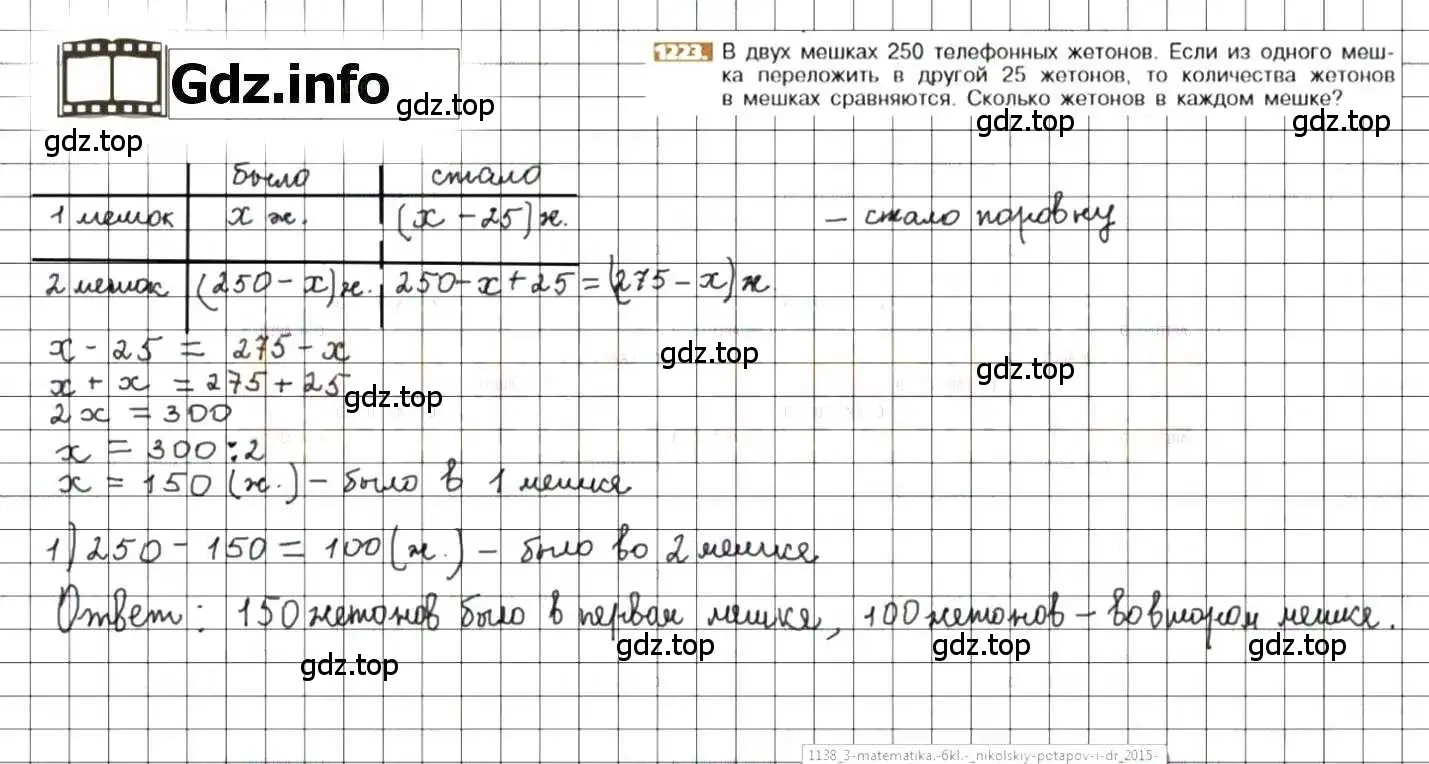 Gdz.info
gdz.top
gdz.top
1223. В двух мешках 250 телефонных жетонов. Если из одного меш-
ка переложить в другой 25 жетонов, то количества жетонов
в мешках сравняются. Сколько жетонов в каждом мешке?
gdz.top gdz.top
было стало
1 мешок x ж. (x - 25) ж. - стало поровну
2 мешок (250 - x) ж. 250 - x + 25 = (275 - x) ж
x - 25 = 275 - x
gdz.top gdz.top
x + x = 275 + 25
gdz.top
2x = 300
x = 300 : 2
x = 150 (ж.) - было в 1 мешке
1) 250 - 150 = 100 (ж.) - было во 2 мешке
Ответ: 150 жетонов было в первом мешке, 100 жетонов - во втором мешке.
gdz.top gdz.top gdz.top gdz.top
1138_3-matematika.-6kl.-_nikolskiy-potapov-i-dr_2015-